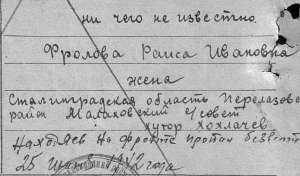 ни чего не известно.
Фролова Раиса Ивановна
жена
Сталинградская область Перелазовс
район Малаховский с/совет
хутор Хохлачев
Находясь на фронте пропал безвест
25 1942 года